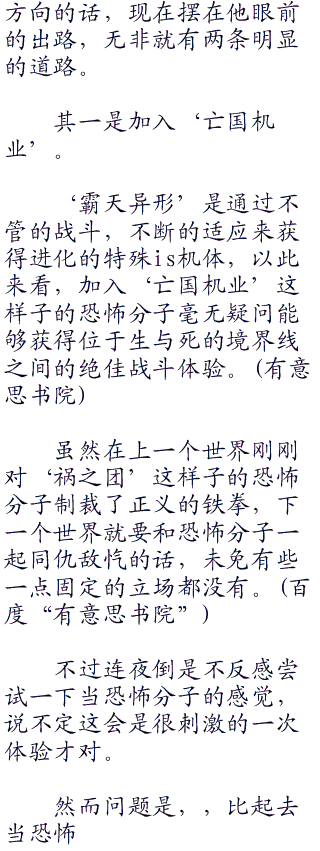 方向的话，现在摆在他眼前
的出路，无非就有两条明显
的道路。
其一是加入‘亡国机
业’。
‘霸天异形’是通过不
管的战斗，不断的适应来获
得进化的特殊is机体，以此
来看，加入‘亡国机业’这
样子的恐怖分子毫无疑问能
够获得位于生与死的境界线
之间的绝佳战斗体验。(有意
思书院)
虽然在上一个世界刚刚
对‘祸之团’这样子的恐怖
分子制裁了正义的铁拳，下
一个世界就要和恐怖分子一
起同仇敌忾的话，未免有些
一点固定的立场都没有。(百
度“有意思书院”)
不过连夜倒是不反感尝
试一下当恐怖分子的感觉，
说不定这会是很刺激的一次
体验才对。
然而问题是，，比起去
当恐怖